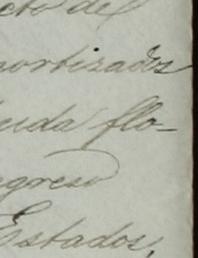 cto del
mortizados
euda flo-
ngreso
Estados,